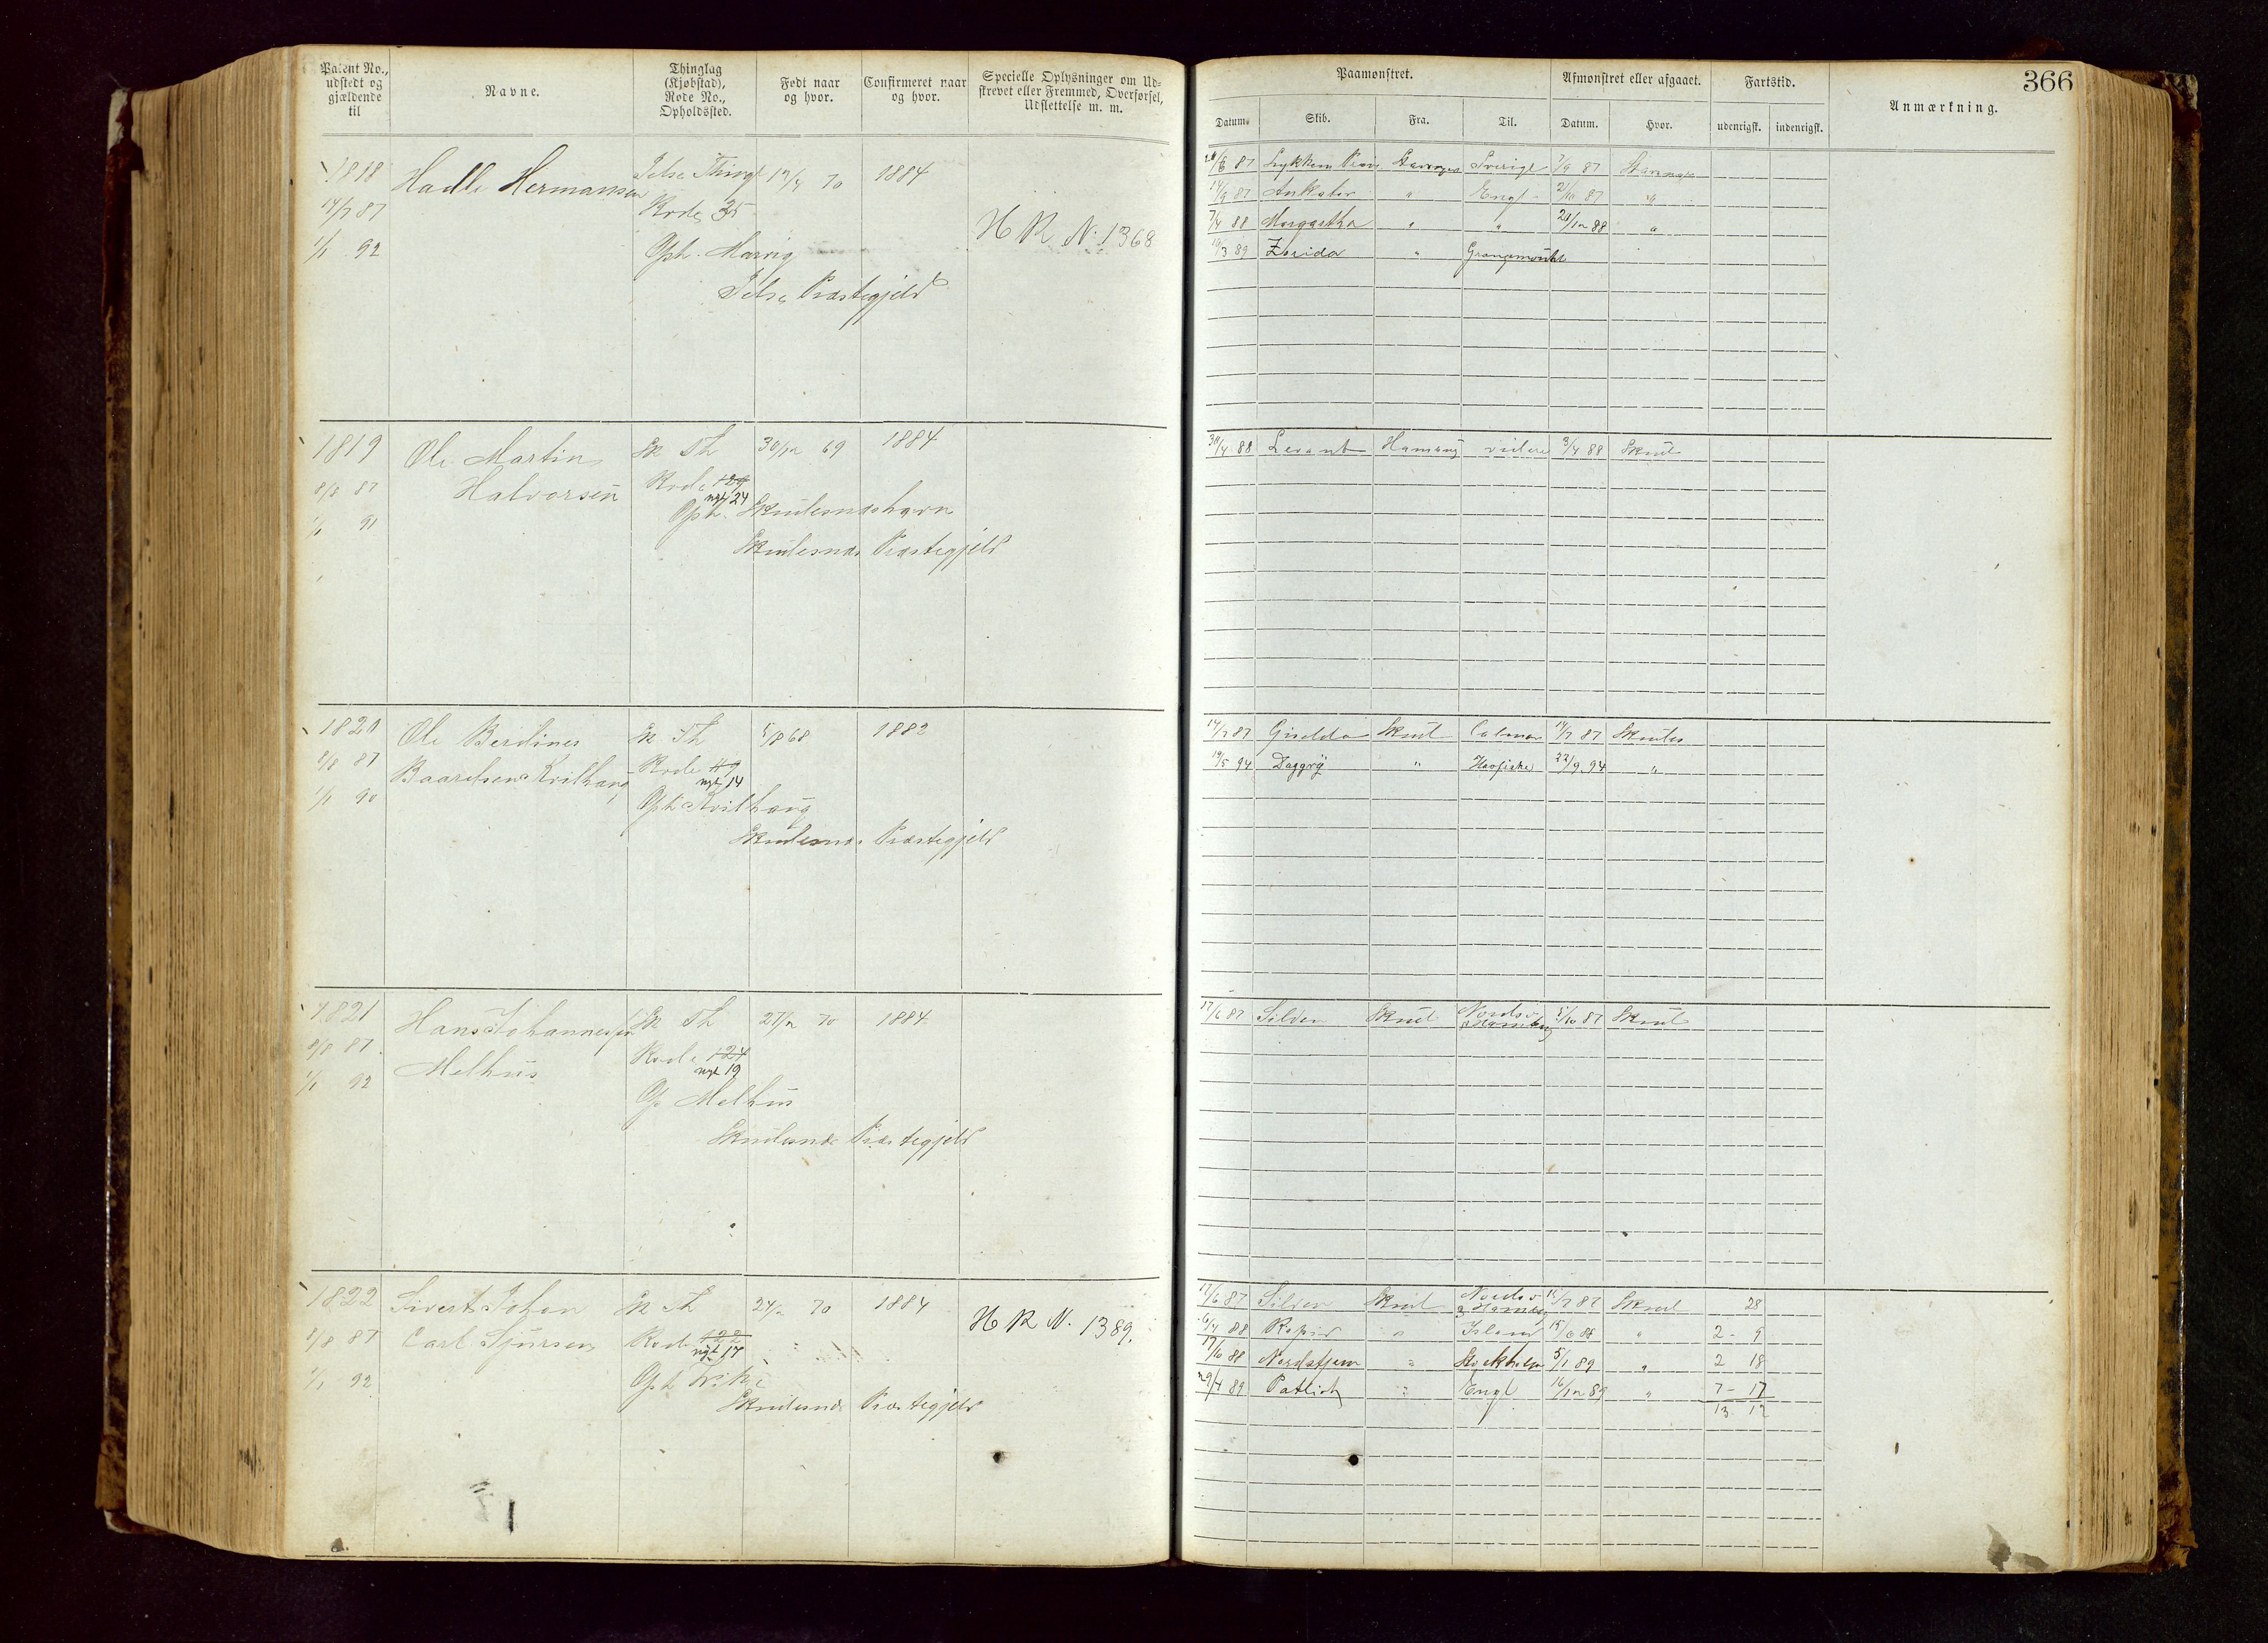 Patent No., udstedt og gjældende til
Navne.
Thinglag (Kjøbstad), Rode No., Opholdssted.
Født naar og hvor.
Confirmeret naar og hvor.
Specielle Oplysninger om Udskrevet eller Fremmed, Overførsel, Udslettelse m. m.
1818 Hadle Hermansen Jelse Thingl 19/4 70 1884
14/7 87 Rode 35
H R N. 1368
1/1 92 Oph. Marvig
Jelse Præstegjeld
1819 Ole Martin Sk Th 30/12 69 1884
8/8 87 Halvorsen Rode 129
nyt 24
1/1 91 Oph. Skudesnæshavn
Skudesnæs Præstegjeld
1820 Ole Berdines Sk Th 5/8 68 1882
8/8 87 Baardsen Kvilhaug Rode 119
nyt 14
1/1 90 Oph Kvilhaug
Skudesnæs Præstegjeld
1821 Hans Johannessen Sk Th 27/12 70 1884
8/8 87 Melhus Rode 124
nyt 19
1/1 92 Op Melhus
Skudesnæs Præstegjeld
1822 Sivert Johan Sk Th 24/2 70 1884
8/8 87 Carl Sjursen Rode 122
nyt 17
H R N. 1389.
1/1 92 Oph
Skudesnæs Præstegjeld
366
Paamønstret.
Afmønstret eller afgaaet.
Fartstid.
Anmærkning.
Datum. Skib. Fra. Til. Datum. Hvor. udenrigst. indenrigst.
20/6 87 Lykkens Stavanger Sverige 7/9 87 Stavanger
14/9 87 Ankator " Engl 21/10 87 "
7/4 88 Margartha " " 20/12 88 "
19/3 89 Zerida " Grangemouth
30/4 88 Levant Hamburg videre 3/4 88 Skud
14/7 87 Giselda Skud Calmar 14/7 87 Skudes
19/5 94 Daggry " Havfiske 22/9 94 "
17/6 87 Silden Skud Nordsv & Hamburg 5/10 87 Skud
17/6 87 Silden Skud Nordsv & Hamburg 15/7 87 Skud 28
6/4 88 Rapid " Island 15/6 88 " 2 - 9
17/10 88 Nordstjern " Stockholm 5/1 89 " 2 18
29/4 89 Patlich " Engl 16/12 89 " 7 - 17
13 12